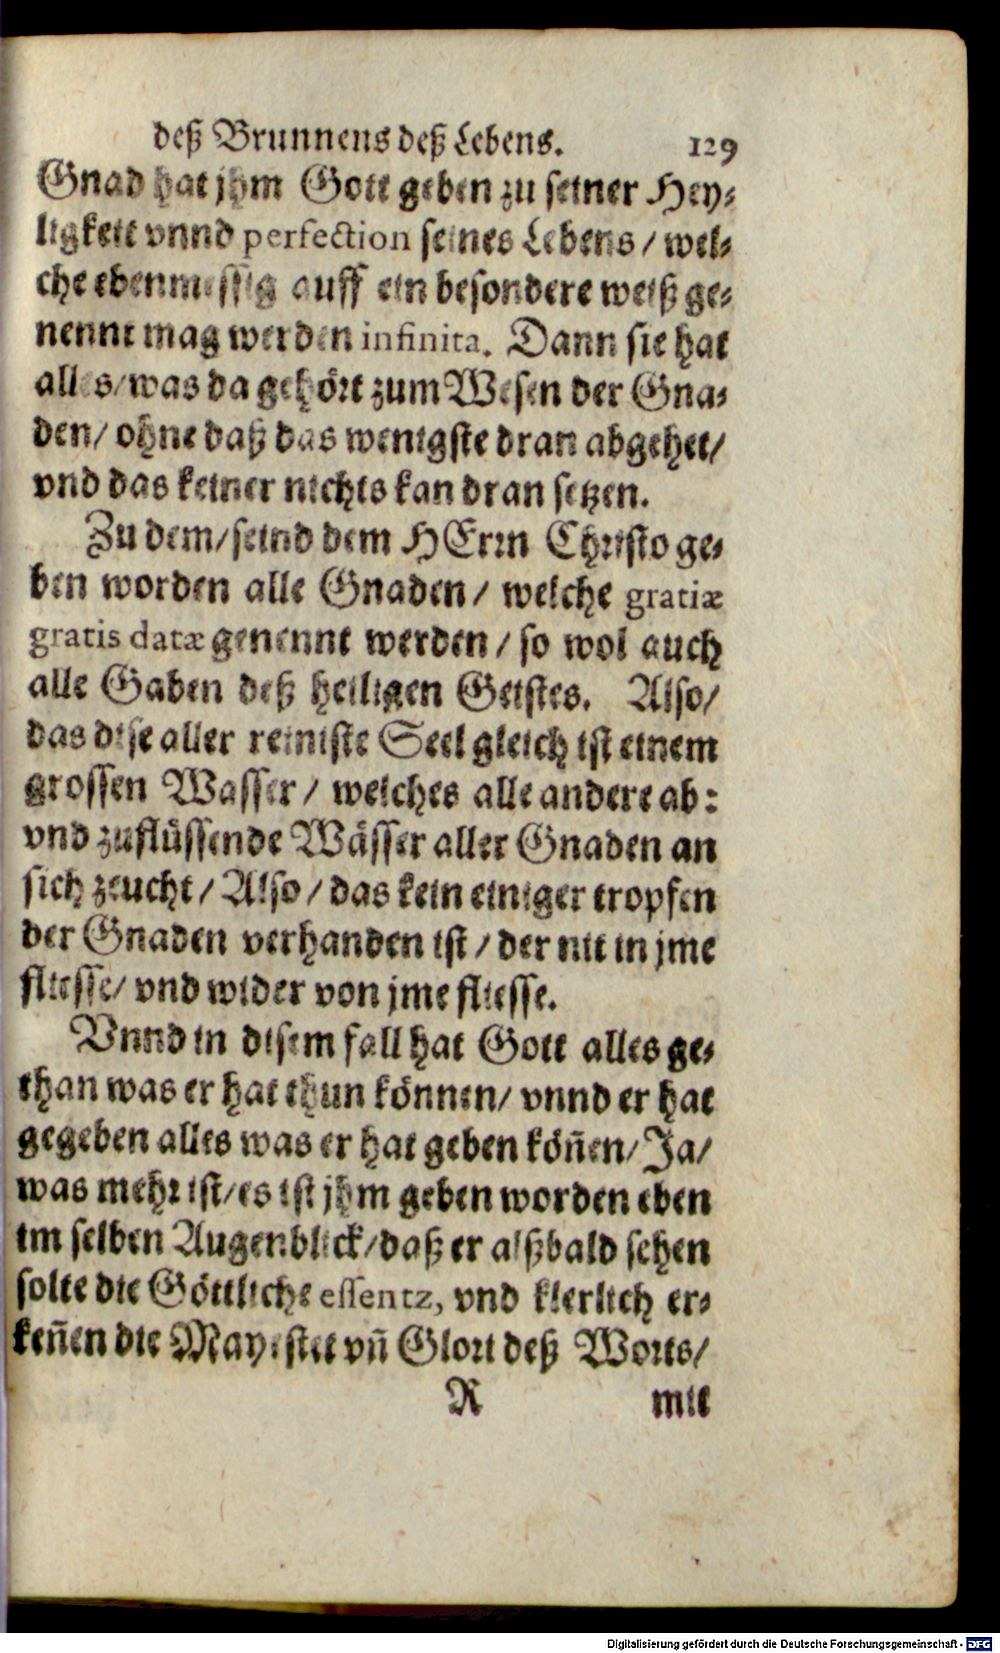 deß Brunnens deß Lebens. 129
Gnad hat jhm Gott geben zu seiner Hey-
ligkeit vnnd perfection seines Lebens / wel-
che ebenmessig auff ein besondere weiß ge-
nennt mag werden infinita. Dann sie hat
alles/was da gehört zum Wesen der Gna-
den/ ohne daß das wenigste dran abgehet/
vnd das keiner nichts kan dran setzen.
Zu dem/seind dem HErrn Christo ge-
ben worden alle Gnaden/ welche gratiæ
gratis datæ genennt werden/ so wol auch
alle Gaben deß heiligen Geistes. Also/
das dise aller reiniste Seel gleich ist einem
grossen Wasser/ welches alle andere ab:
vnd zuflüssende Wässer aller Gnaden an
sich zeucht/ Also/ das kein einiger tropfen
der Gnaden verhanden ist/ der nit in jme
fliesse/ vnd wider von jme fliesse.
Vnnd in disem fall hat Gott alles ge-
than was er hat thun können/ vnnd er hat
gegeben alles was er hat geben köñen/ Ja/
was mehr ist/es ist jhm geben worden eben
im selben Augenblick/daß er alßbald sehen
solte die Göttliche essentz, vnd klerlich er-
keñen die Mayestet vñ Glori deß Worts/
R mit
Digitalisierung gefördert durch die Deutsche Forschungsgemeinschaft - DFG